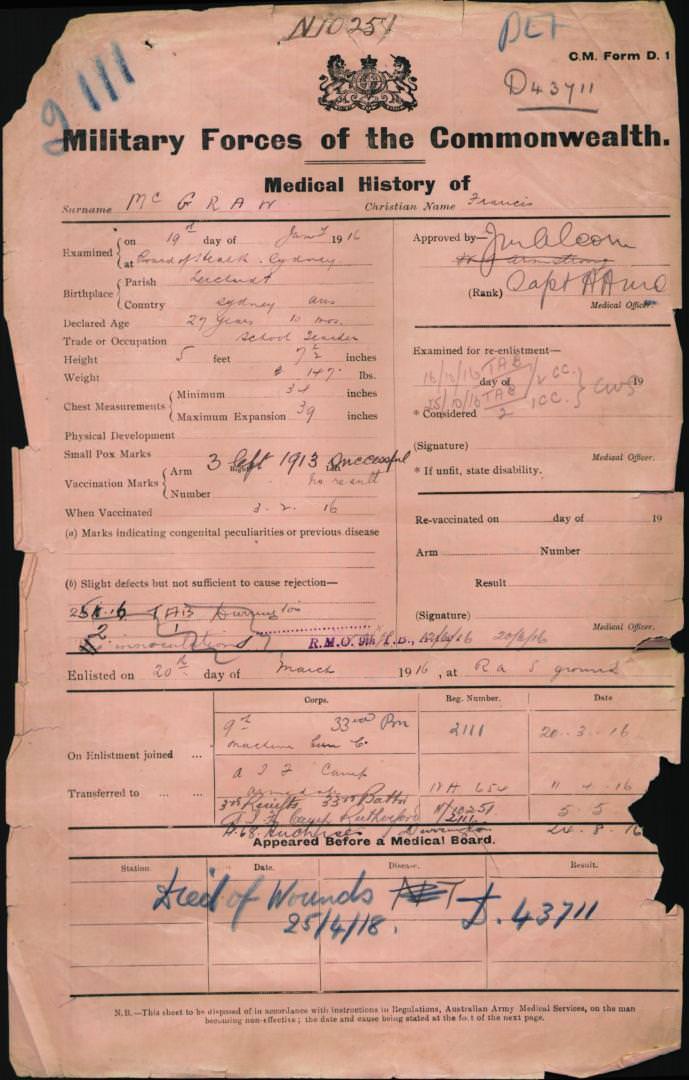 N10251
DET
C.M. Form D. 1
2111
D43711
Military Forces of the Commonwealth.
Medical History of
Surname Mc GRAW Christian Name Francis
Examined { on 19th day of Jany 1916
at Board of Health. Sydney.
Birthplace { Parish
Country Sydney Aus
Declared Age 27 years 10 mos.
Trade or Occupation School Teacher
Height 5 feet 7 1/2 inches
Weight 147 lbs.
Chest Measurements { Minimum 34 inches
Maximum Expansion 39 inches
Physical Development
Small Pox Marks
Vaccination Marks { Arm 3 left 1913 Successful
Number no result
When Vaccinated 3. 2. 16
(a) Marks indicating congenital peculiarities or previous disease
(b) Slight defects but not sufficient to cause rejection—
Approved by—
Armstrong
(Rank) Capt AAMC
Medical Officer.
Examined for re-enlistment—
day of 19
16/9/16 TAB 1/2 CC.
25/10/16 TAB 1 CC.
* Considered
(Signature)
Medical Officer.
* If unfit, state disability.
Re-vaccinated on day of 19
Arm Number
Result
(Signature)
Medical Officer.
25 16 TAB Durrington
2 innoculations R.M.O. 20/6/16
Enlisted on 20th day of March 1916, at R A S ground
Corps. Reg. Number. Date
On Enlistment joined ... 9th 33rd Bn 2111 20.3.16
Machine Gun C.
Transferred to ... ... A I F Camp
Armidale 654 11 4 16
3rd Reinfts 33rd Battn N/10251 5.5
A.I.F. Camp Rutherford 2111
A.68. Durrington 24.8.16
Appeared Before a Medical Board.
Station. Date. Disease. Result.
Died of Wounds D.43711
25/4/18.
N.B.—This sheet to be disposed of in accordance with instructions in Regulations, Australian Army Medical Services, on the man
becoming non-effective; the date and cause being stated at the foot of the next page.